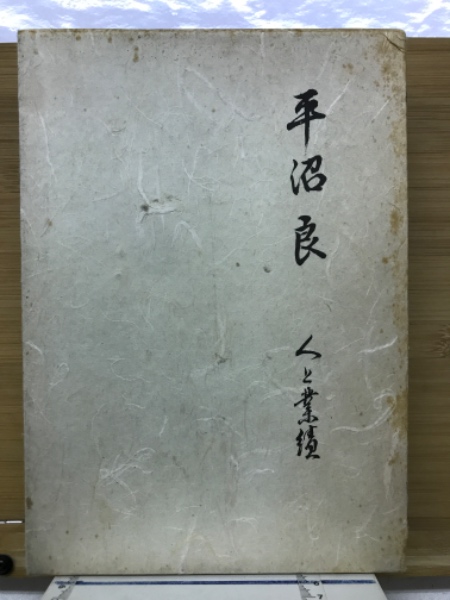 平沼良
人と業績